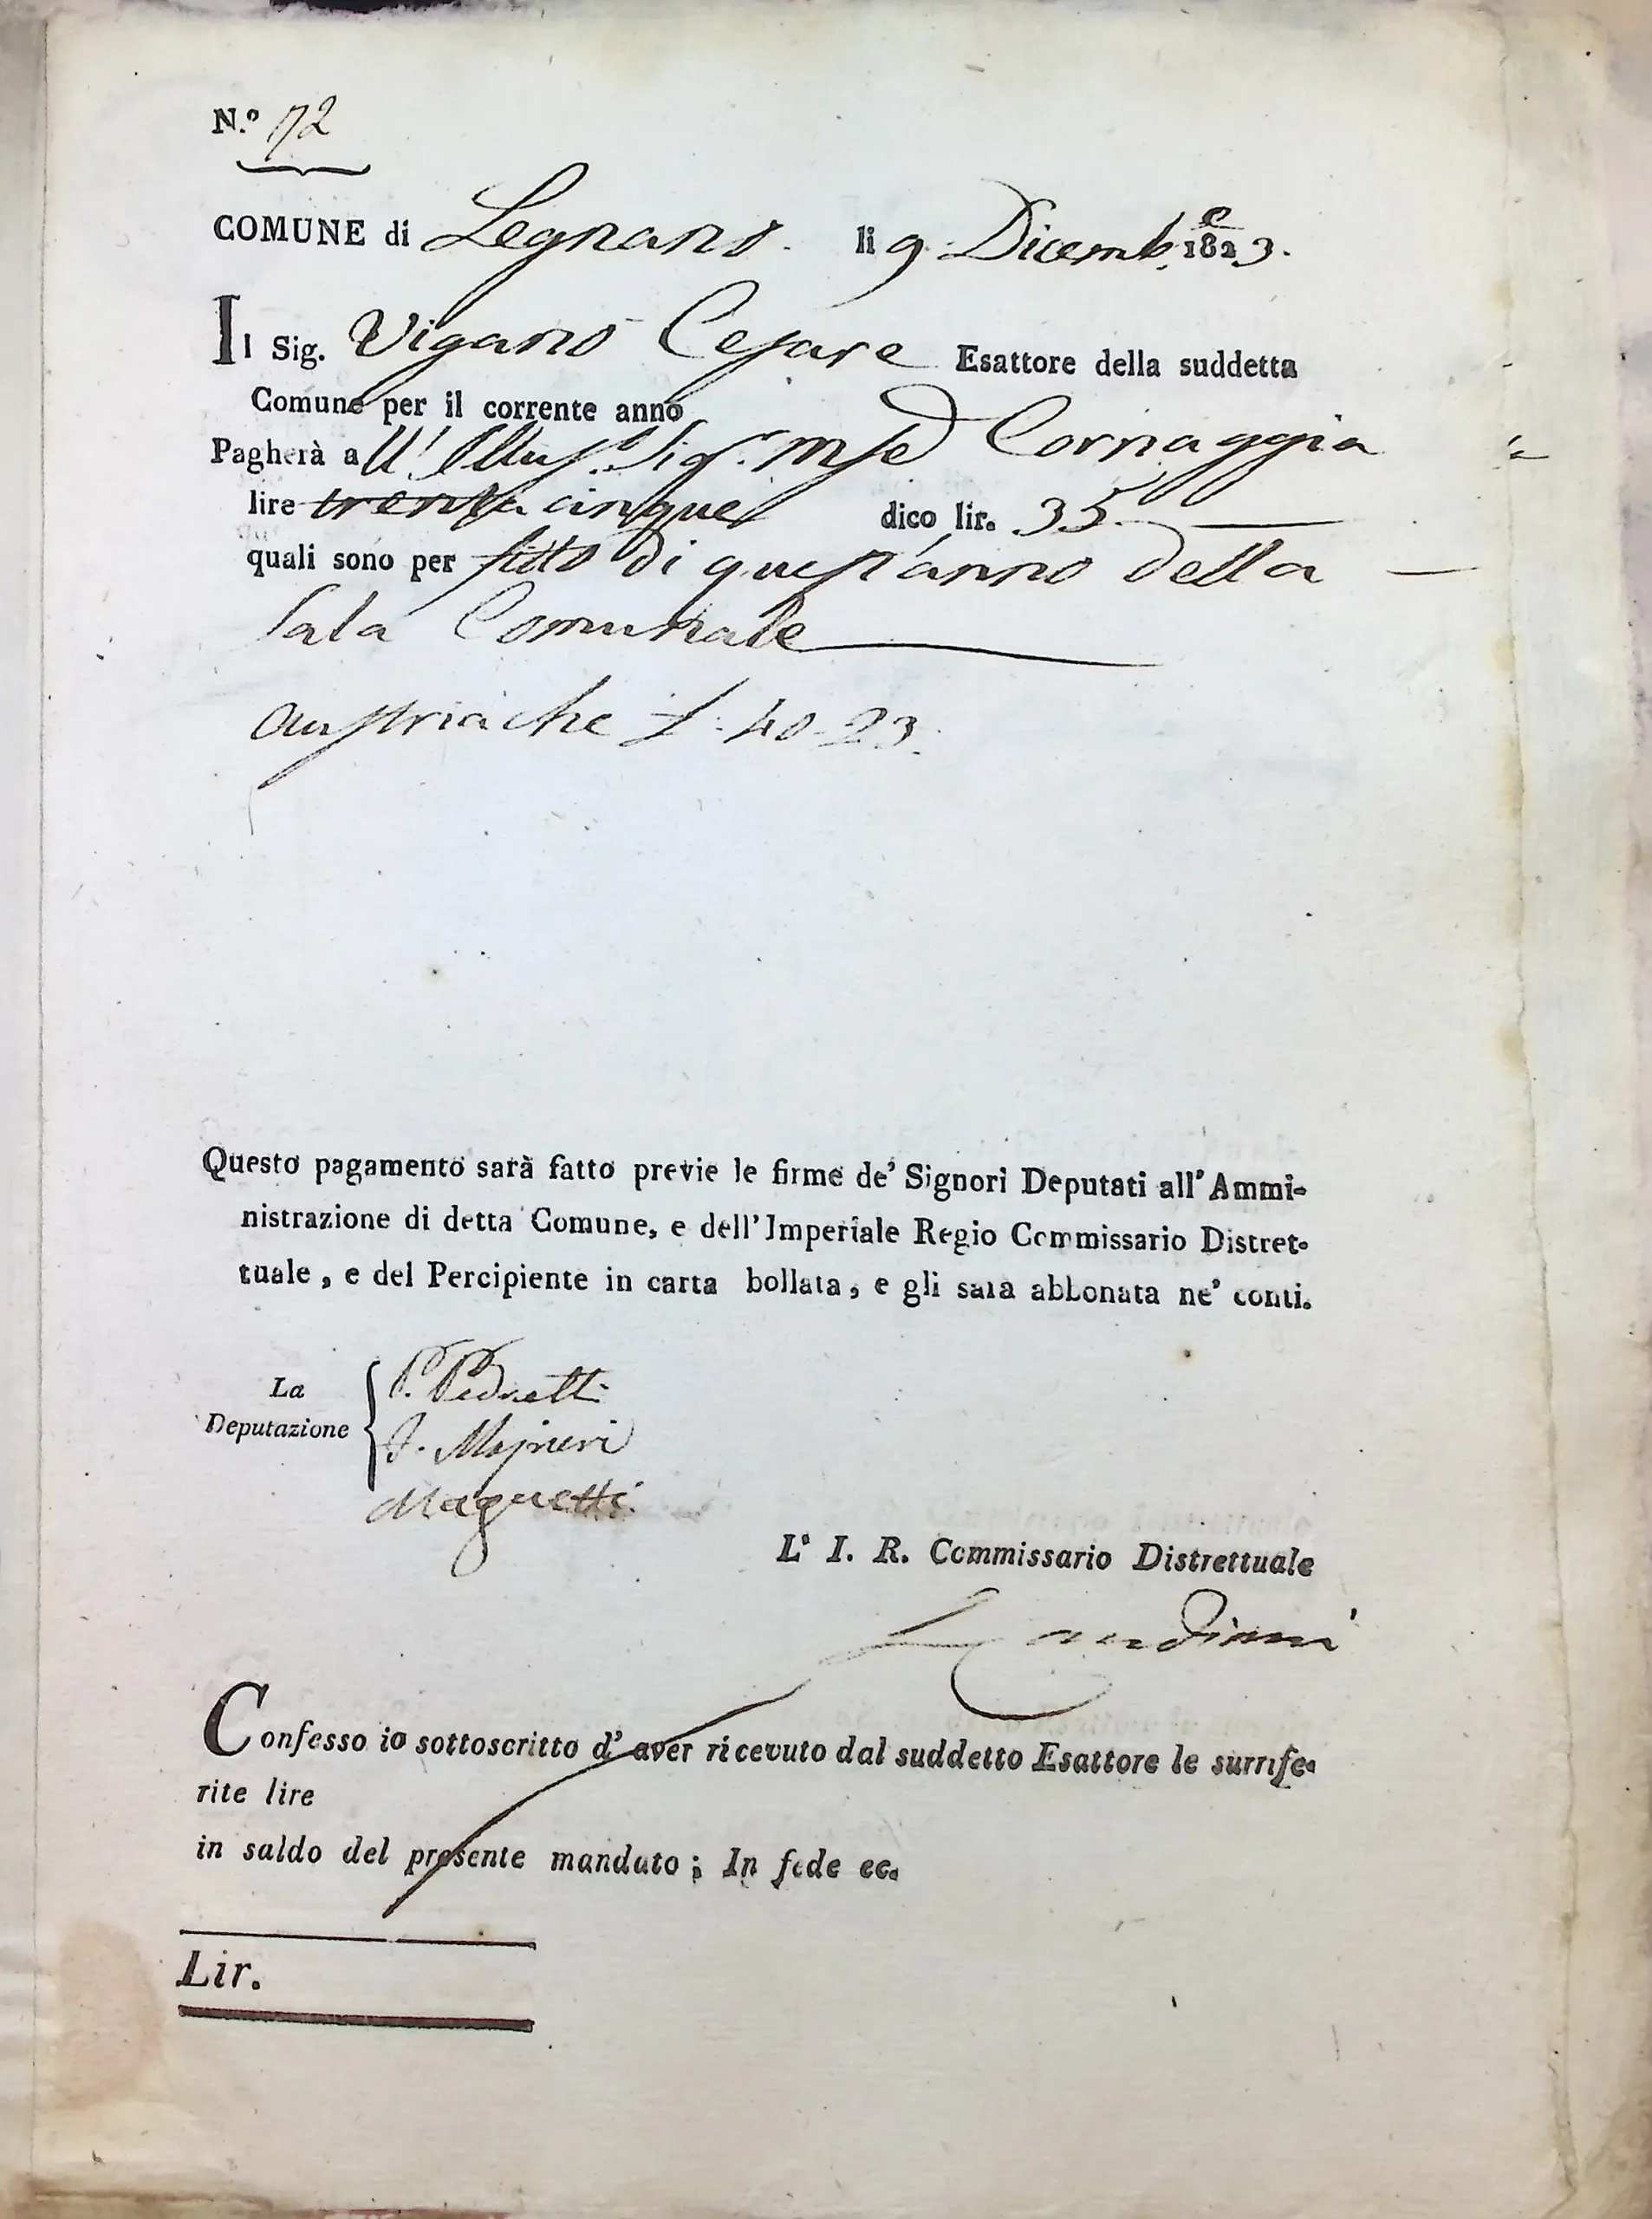 N.º 72
COMUNE di Legnano. li 9 Dicemb.e 1823.
Il Sig. Viganò Cesare Esattore della suddetta
Comune per il corrente anno
Pagherà all' Illus. Sig.r Mse Cornaggia
lire trenta cinque dico lir. 35.
quali sono per fitto di quest'anno della
Sala Comunale
austriache £. 40-23.
Questo pagamento sarà fatto previe le firme de' Signori Deputati all' Ammi-
nistrazione di detta Comune, e dell' Imperiale Regio Commissario Distret-
tuale, e del Percipiente in carta bollata, e gli sara abbonata ne' conti.
La
Deputazione
P. Pedretti
Majneri
Magnetti
L' I. R. Commissario Distrettuale
Confesso io sottoscritto d' aver ricevuto dal suddetto Esattore le surrife-
rite lire
in saldo del presente mandato; In fede ec.
Lir.